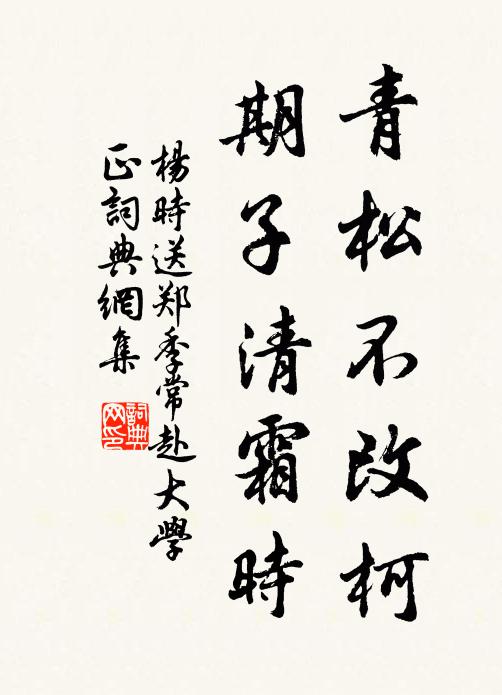 青松不改柯
期子清霜時
楊時送郑季常赴大學
正詞典網集
詞典
网印